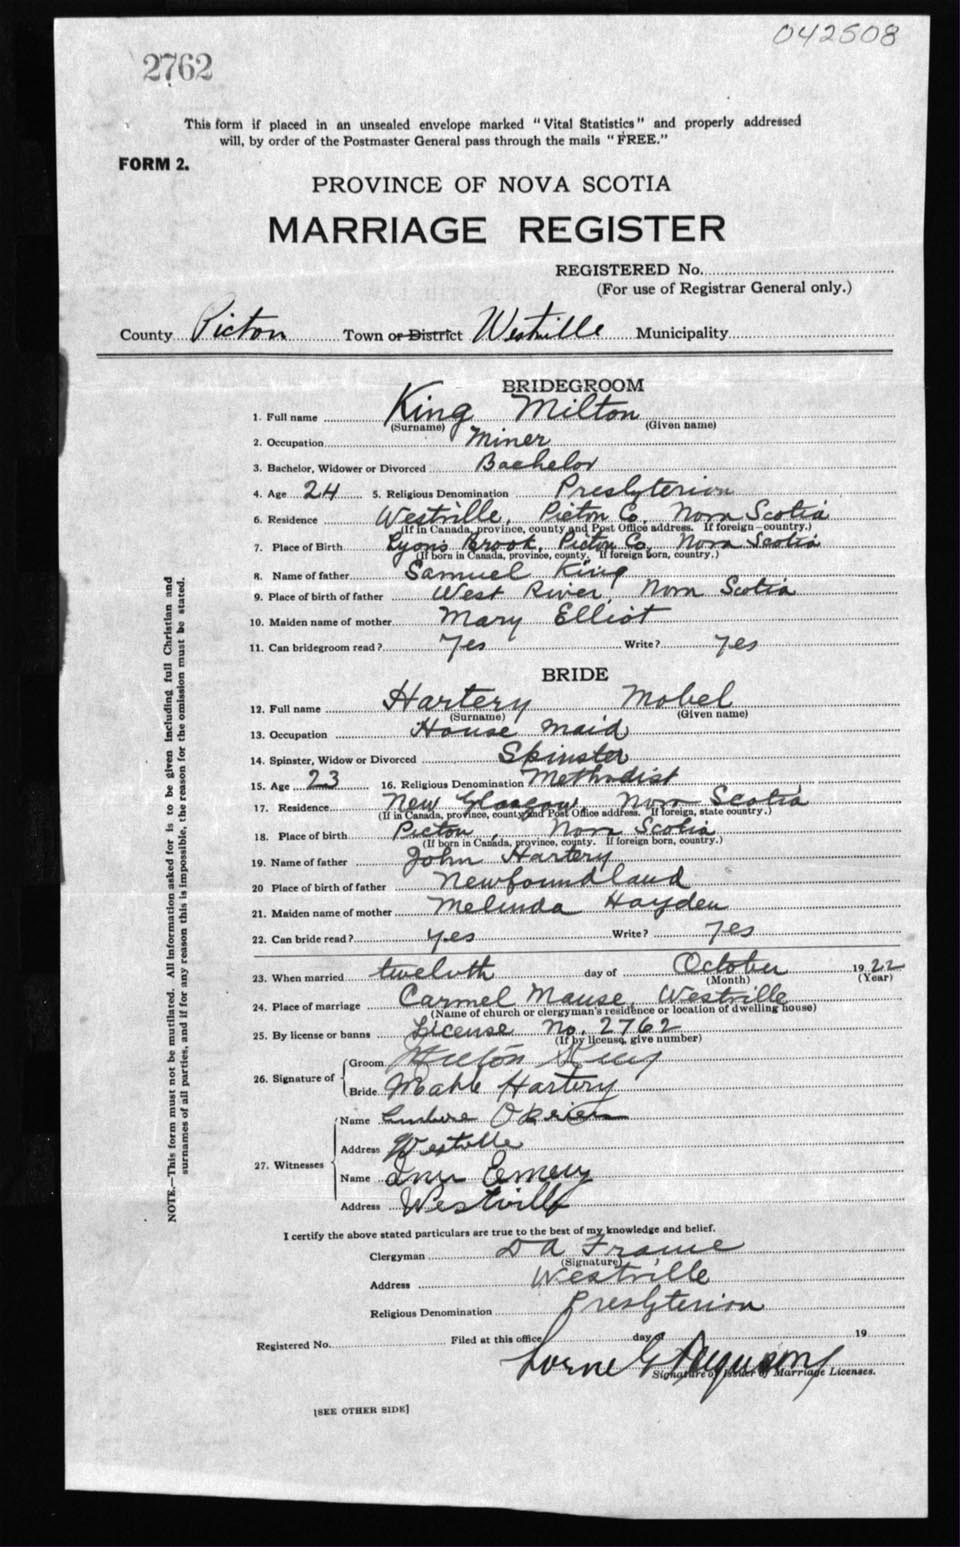 042508
2762
This form if placed in an unsealed envelope marked "Vital Statistics" and properly addressed
will, by order of the Postmaster General pass through the mails "FREE."
FORM 2.
PROVINCE OF NOVA SCOTIA
MARRIAGE REGISTER
REGISTERED No.
(For use of Registrar General only.)
County Picton Town or District Westville Municipality
BRIDEGROOM
1. Full name King Milton
(Surname) (Given name)
2. Occupation Miner
3. Bachelor, Widower or Divorced Bachelor
4. Age 24 5. Religious Denomination Presbyterion
6. Residence Westville, Picton Co, Nova Scotia
(If in Canada, province, county and Post Office address. If foreign—country.)
7. Place of Birth Lyons Brook, Picton Co, Nova Scotia
(If born in Canada, province, county. If foreign born, country.)
8. Name of father Samuel King
9. Place of birth of father West River, Nova Scotia
10. Maiden name of mother Mary Elliot
11. Can bridegroom read? Yes Write? Yes
BRIDE
12. Full name Hartery Mobel
(Surname) (Given name)
13. Occupation House maid
14. Spinster, Widow or Divorced Spinster
15. Age 23 16. Religious Denomination Methodist
17. Residence New Glasgow, Nova Scotia
(If in Canada, province, county and Post Office address. If foreign, state country.)
18. Place of birth Picton, Nova Scotia
(If born in Canada, province, county. If foreign born, country.)
19. Name of father John Hartery
20 Place of birth of father Newfoundland
21. Maiden name of mother Melinda Hayden
22. Can bride read? yes Write? Yes
23. When married twelvth day of October 1922
(Month) (Year)
24. Place of marriage Carmel Manse, Westville
(Name of church or clergyman's residence or location of dwelling house)
25. By license or banns License No. 2762
(If by license, give number)
26. Signature of
Groom Milton King
Bride Mable Hartery
27. Witnesses
Name O'Brien
Address Westville
Name Emery
Address Westville
I certify the above stated particulars are true to the best of my knowledge and belief.
Clergyman D A Frame
(Signature)
Address Westville
Religious Denomination Presbyterion
Registered No. Filed at this office day of 19
Lorne G Ferguson
Signature of Issuer of Marriage Licenses.
[SEE OTHER SIDE]
NOTE.—This form must not be mutilated. All information asked for is to be given including full Christian and
surnames of all parties, and if for any reason this is impossible, the reason for the omission must be stated.